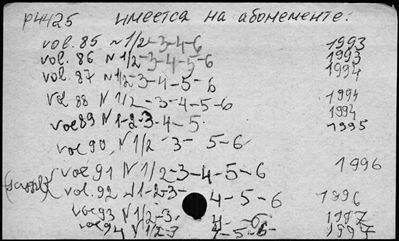 p4425 имеется на абонементе.
vol. 85 N 1/2-3-4-6 1993
vol. 86 N 1/2-3-4-5-6 1993
vol. 87 N 1/2-3-4-5-6 1994
vol 88 N 1/2-3-4-5-6 1994
vol 89 N 1-2-3-4-5. 1994 1995
vol 90 N 1/2-3- 5-6-
vol 91 N 1/2-3-4-5-6 1996
vol. 92 N 1-2-3- 4-5-6 1996
vol 93 N 1/2-3- 4- -6- 1997
vol 94 N 1/2-3 4-5-6- 1997